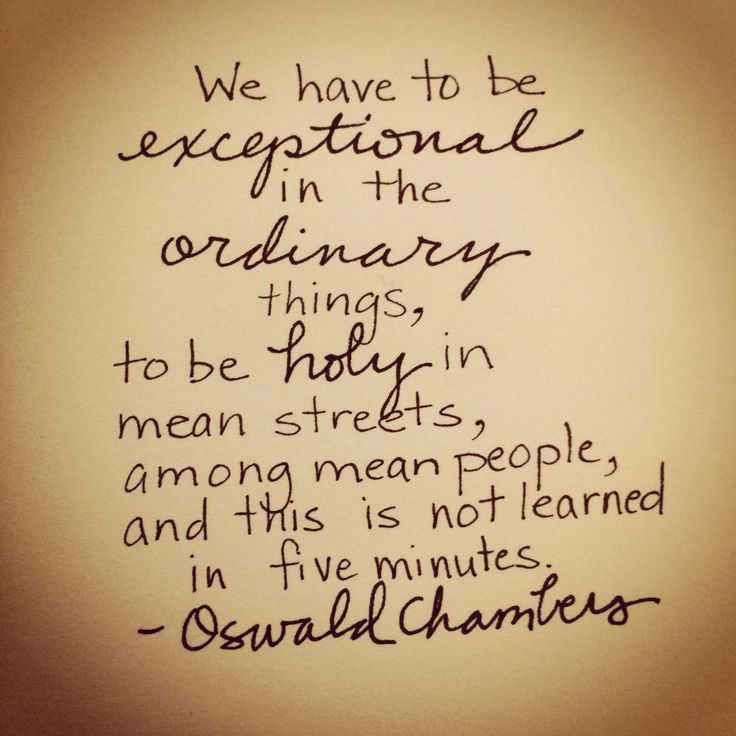 We have to be
exceptional
in the
ordinary
things,
to be holy in
mean streets,
among mean people,
and this is not learned
in five minutes.
- Oswald Chambers